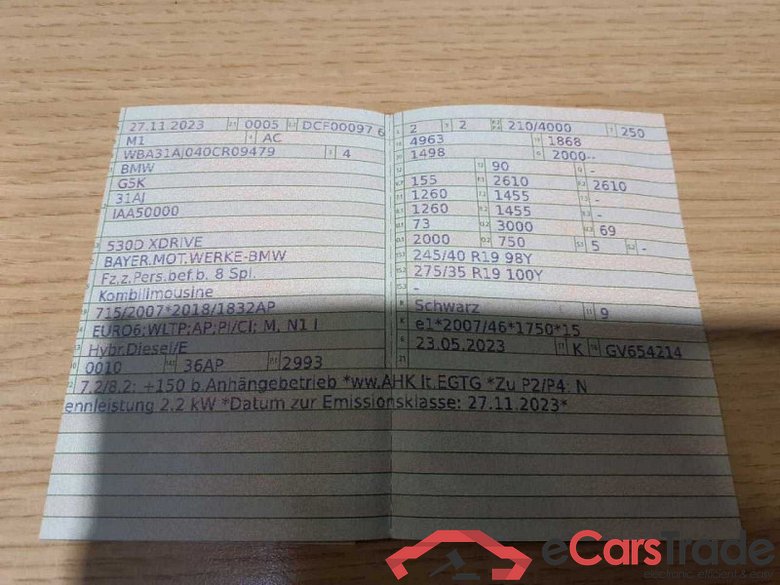 27.11 2023 0005 DCF00097 6
M1 AC
WBA31AJ040CR09479 4
BMW
G5K
31AJ
IAA50000
530D XDRIVE
BAYER.MOT.WERKE-BMW
Fz.z.Pers.bef.b. 8 Spl.
Kombilimousine
715/2007*2018/1832AP
EURO6;WLTP;AP;PI/CI; M, N1 I
Hybr.Diesel/E
0010 36AP 2993
2 2 210/4000 250
4963 1868
1498 2000--
90 -
155 2610 2610
1260 1455 -
1260 1455 -
73 3000 69
2000 750 5 -
245/40 R19 98Y
275/35 R19 100Y
-
Schwarz 9
e1*2007/46*1750*15
23.05.2023 K GV654214
7.2/8.2: +150 b.Anhängebetrieb *ww.AHK lt.EGTG *Zu P2/P4: N
ennleistung 2.2 kW *Datum zur Emissionsklasse: 27.11.2023*
eCarsTrade
electronic, efficient & easy